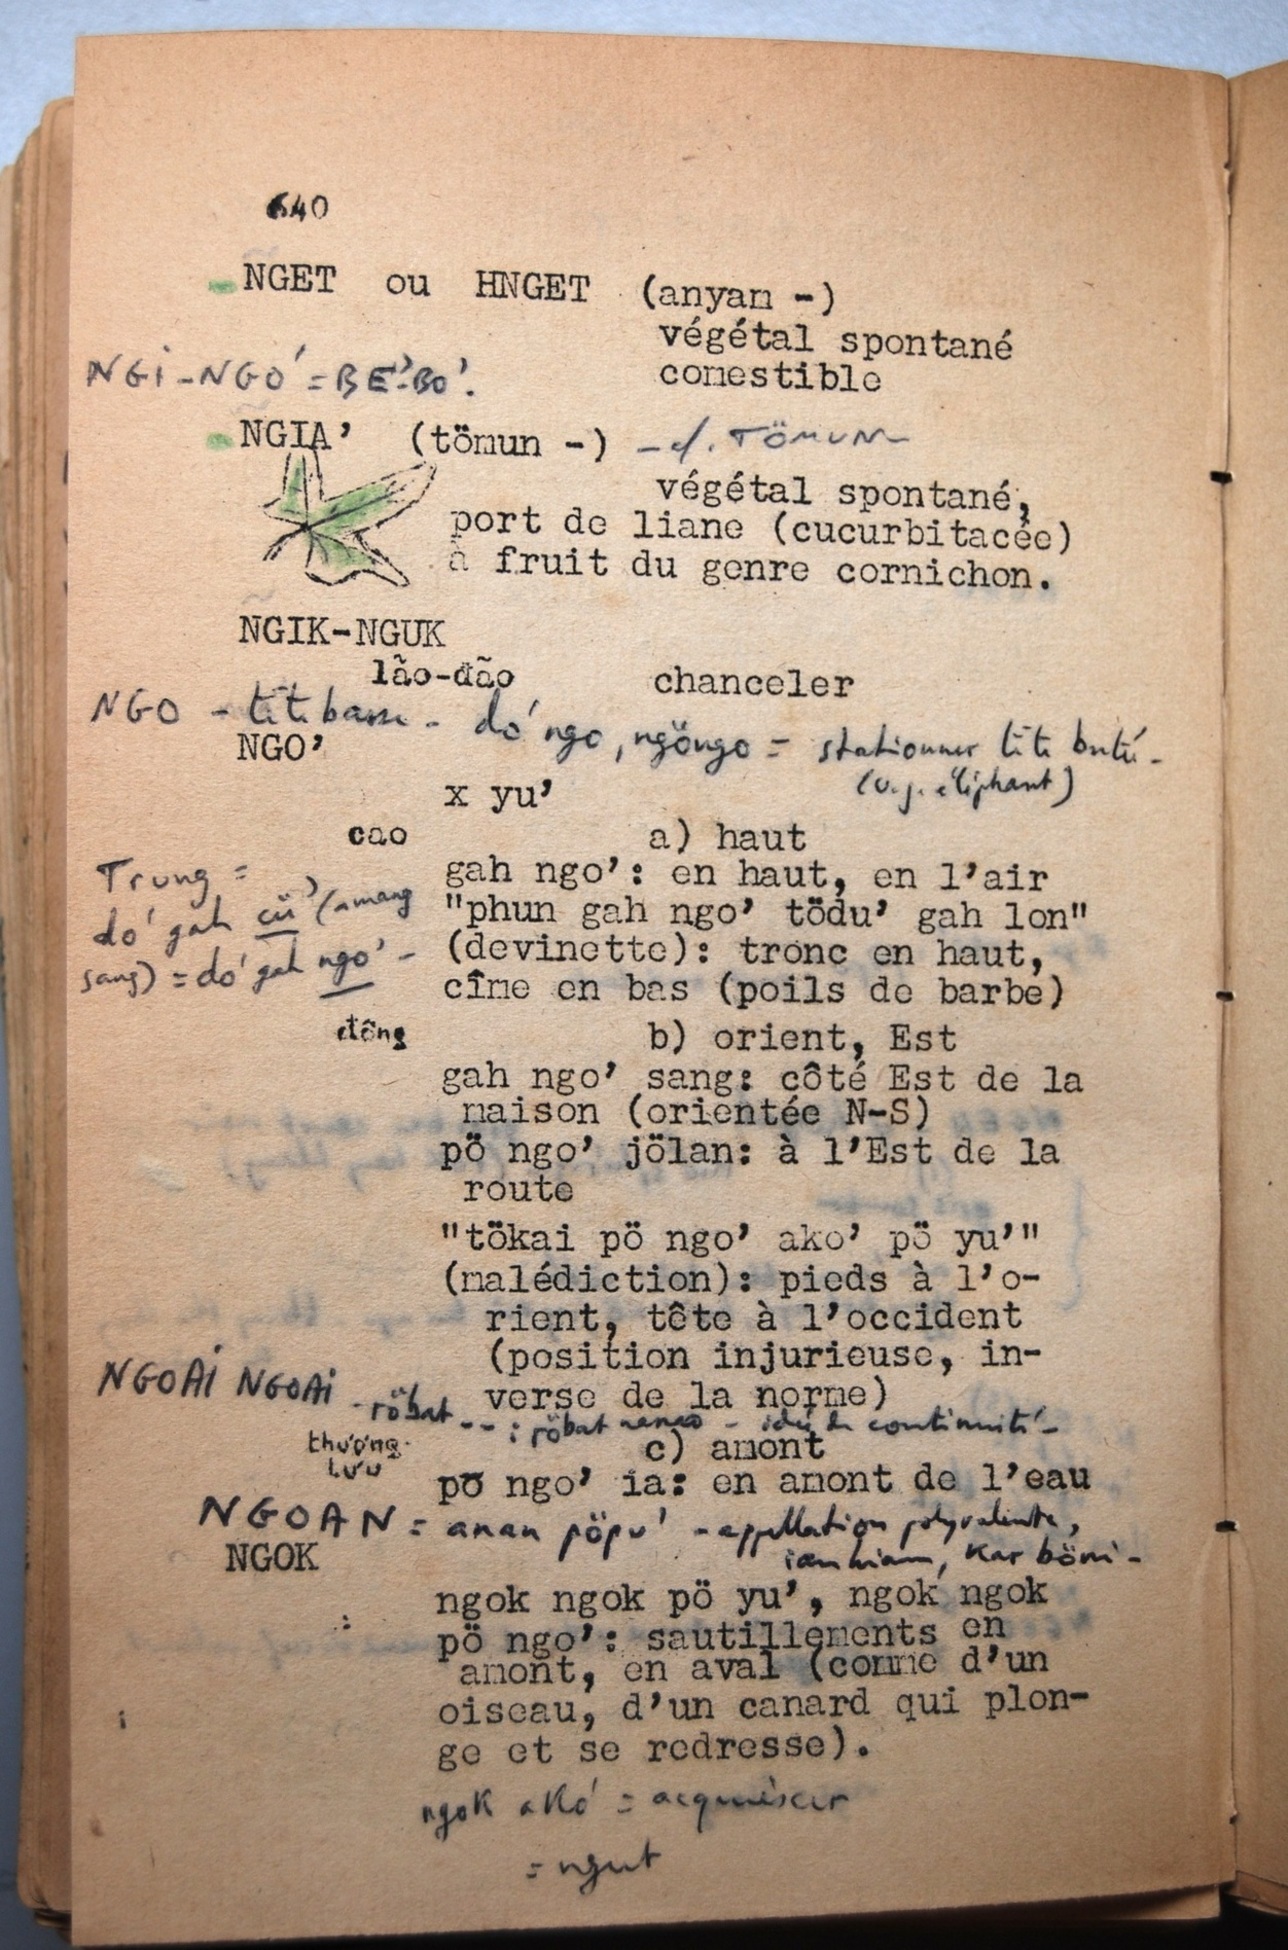 640
NGET ou HNGET (anyam -)
végétal spontané
comestible
NGI-NGÓ = BE'-BO'.
NGIA' (tömun -) - cf. TÖMUN
végétal spontané,
port de liane (cucurbitacée)
à fruit du genre cornichon.
NGIK-NGUK
lão-đão chanceler
NGO - tête basse - dó ngo, ngöngo = stationner tête butée -
(v.g. éléphant)
NGO'
x yu'
cao a) haut
gah ngo': en haut, en l'air
"phun gah ngo' tödu' gah lon"
(devinette): tronc en haut,
cîme en bas (poils de barbe)
Trung =
dó gah (amang
sang) = dó gah ngo' -
đông b) orient, Est
gah ngo' sang: côté Est de la
maison (orientée N-S)
pö ngo' jölan: à l'Est de la
route
"tökai pö ngo' ako' pö yu'"
(malédiction): pieds à l'o-
rient, tête à l'occident
(position injurieuse, in-
verse de la norme)
NGOAI NGOAI - röbat -- : röbat - idée de continuité -
thượng
lưu c) amont
pö ngo' ia: en amont de l'eau
NGOAN = anan pöpu' - appellation polyvalente,
Kar böni -
NGOK
ngok ngok pö yu', ngok ngok
pö ngo': sautillements en
amont, en aval (comme d'un
oiseau, d'un canard qui plon-
ge et se redresse).
ngok akó = acquiescer
= ngut